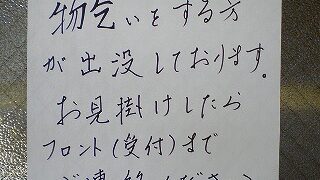 物乞いをする方
が出没しております。
お見掛けしたら
フロント(受付)まで
ご連絡ください